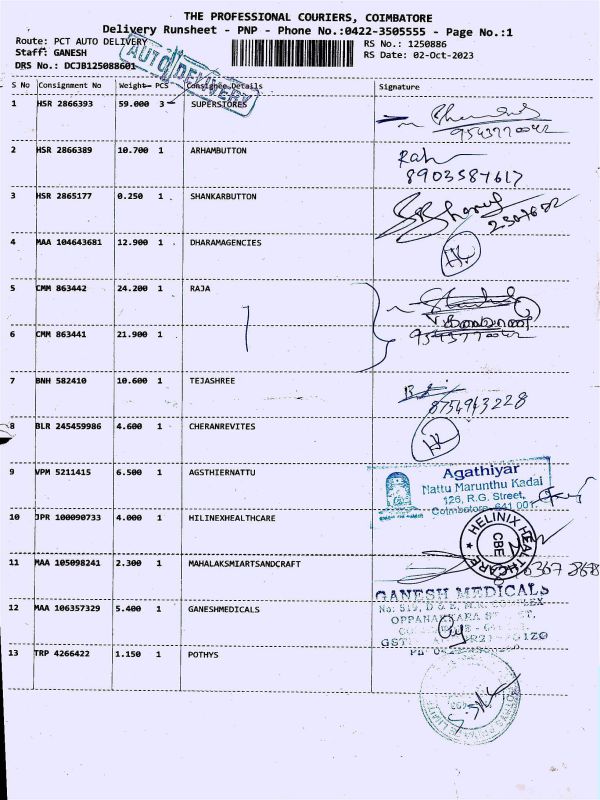 THE PROFESSIONAL COURIERS, COIMBATORE
Delivery Runsheet - PNP - Phone No.:0422-3505555 - Page No.:1
Route: PCT AUTO DELIVERY RS No.: 1250886
Staff: GANESH RS Date: 02-Oct-2023
DRS No.: DCJB125088601
AUTO DELIVERY
S No Consignment No Weight PCS Consignee Details Signature
1 HSR 2866393 59.000 3 SUPERSTORES
9543770042
2 HSR 2866389 10.700 1 ARHAMBUTTON
8903587617
3 HSR 2865177 0.250 1 SHANKARBUTTON
4 MAA 104643681 12.900 1 DHARAMAGENCIES
5 CMM 863442 24.200 1 RAJA
6 CMM 863441 21.900 1
9543770042
7 BNH 582410 10.600 1 TEJASHREE
8754943228
8 BLR 245459986 4.600 1 CHERANREVITES
9 VPM 5211415 6.500 1 AGSTHIERNATTU
Agathiyar
Nattu Marunthu Kadai
126, R.G. Street,
Coimbatore-641 001.
10 JPR 100090733 4.000 1 HILINEXHEALTHCARE
HELINIX HEALTHCARE
CBE
2
11 MAA 105098241 2.300 1 MAHALAKSMIARTSANDCRAFT
12 MAA 106357329 5.400 1 GANESHMEDICALS
GANESH MEDICALS
OPPANAKKARA
13 TRP 4266422 1.150 1 POTHYS